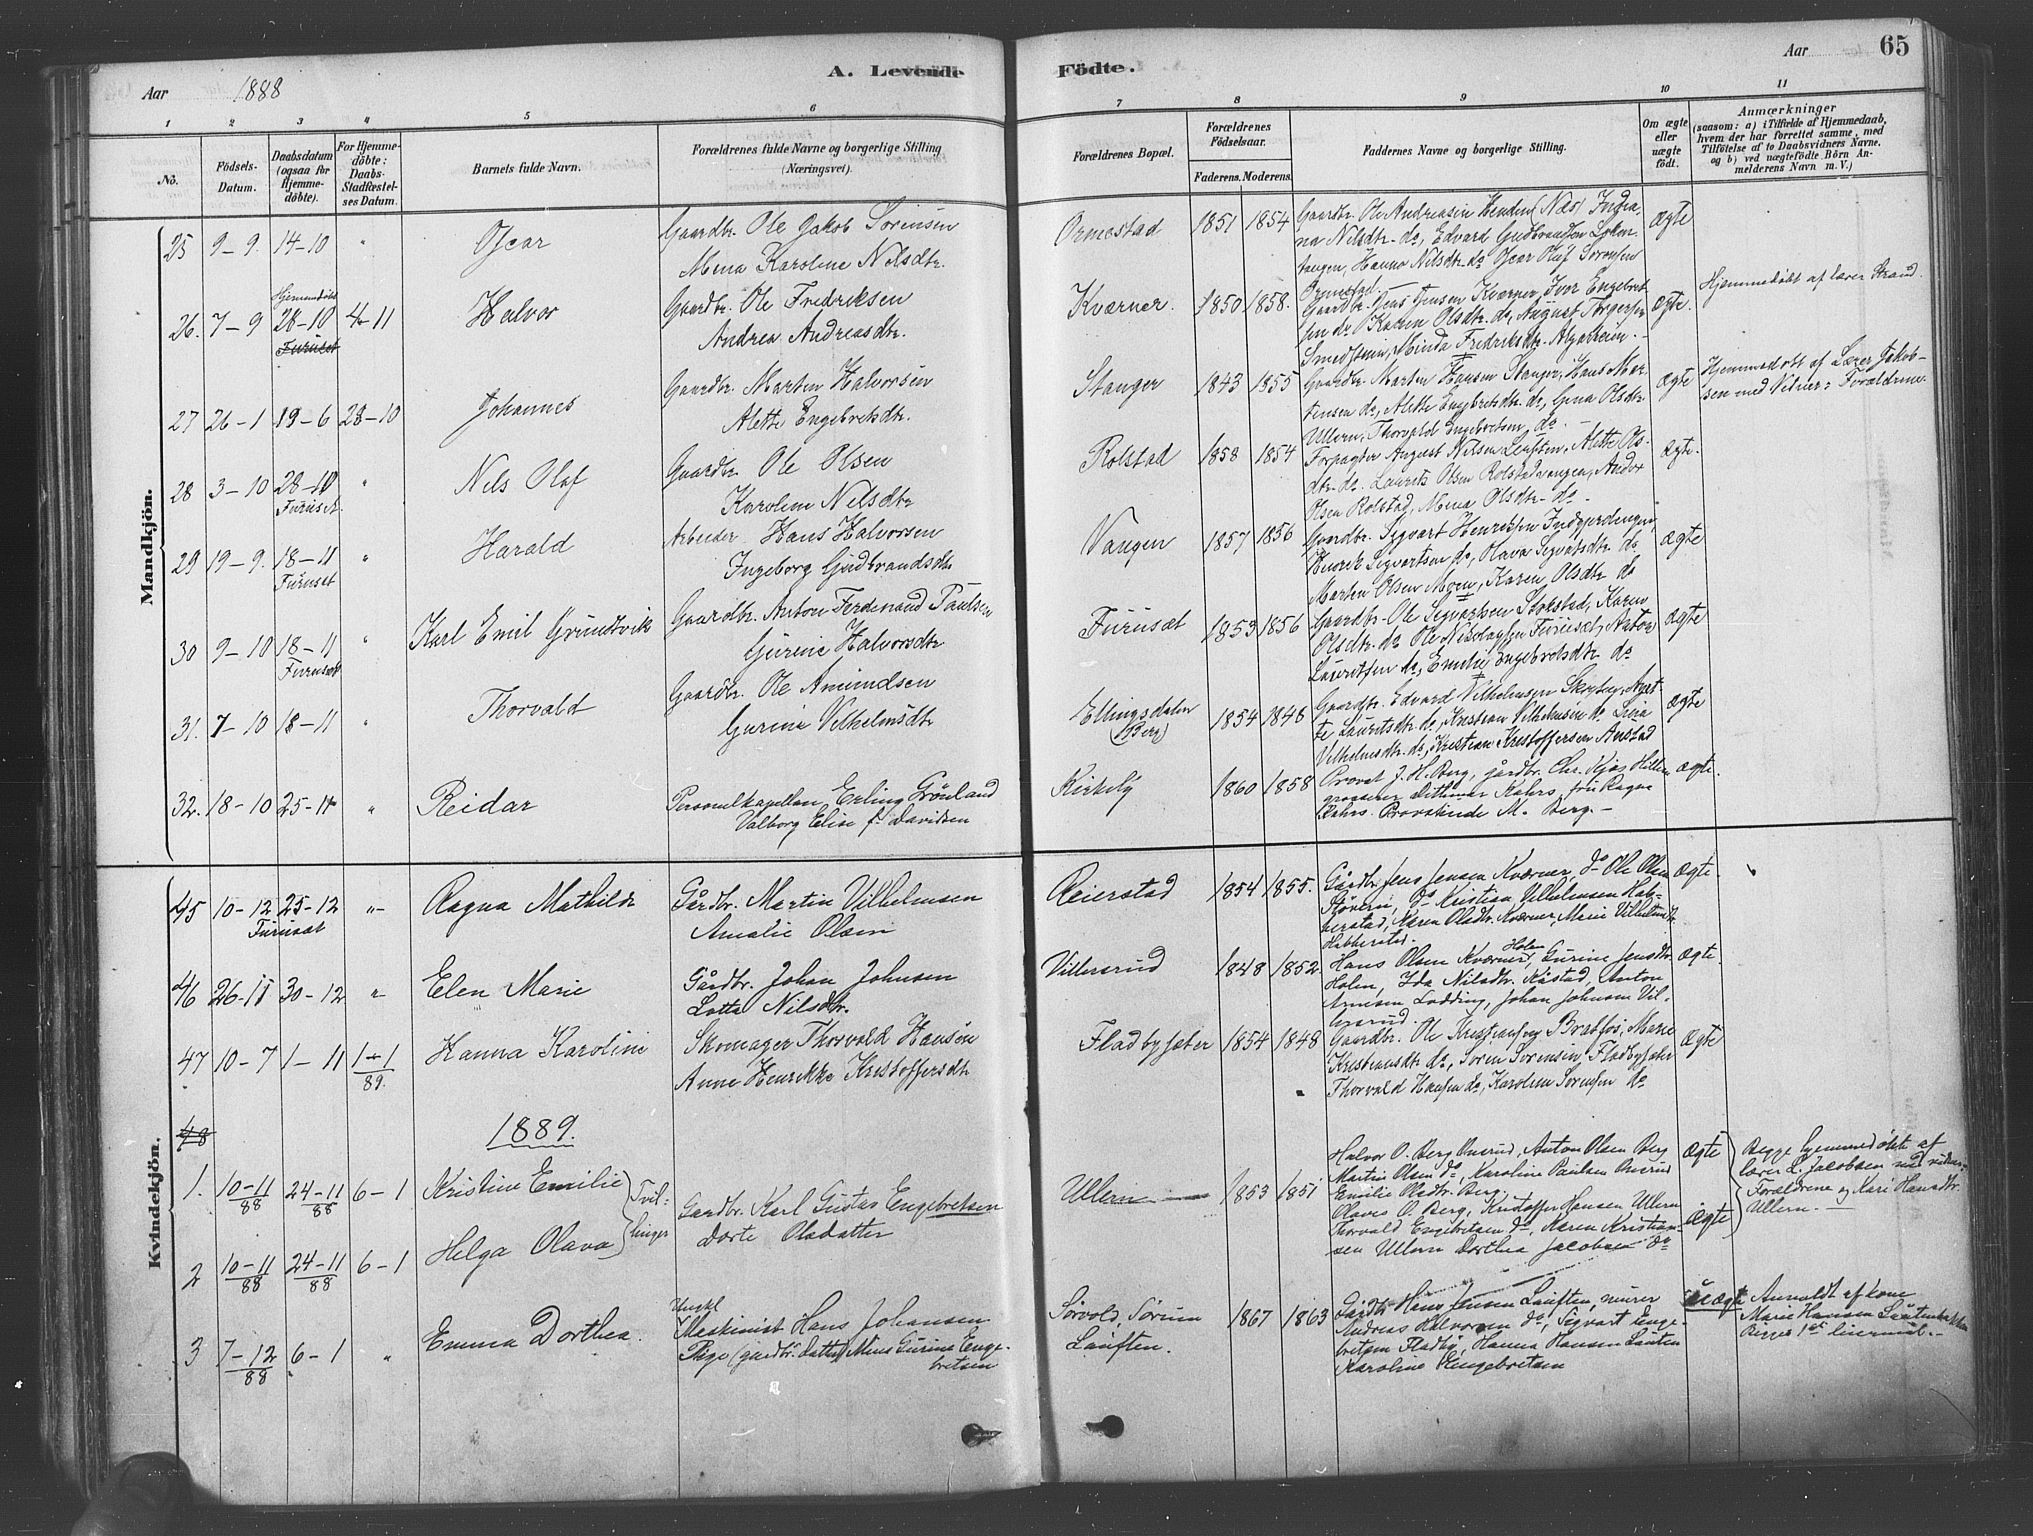 A. Levende Fødte.
65
Aar 1888
Aar
1 2 3 4 5 6 7 8 9 10 11
No.
Födsels-Datum.
Daabsdatum (ogsaa for Hjemmedöbte).
For Hjemmedöbte: Daabs-Stadfæstelses Datum.
Barnets fulde Navn.
Forældrenes fulde Navne og borgerlige Stilling (Næringsvei).
Forældrenes Bopæl.
Forældrenes Födselsaar.
Faderens. Moderens.
Faddernes Navne og borgerlige Stilling.
Om ægte eller uægte födt.
Anmærkninger (saasom: a) i Tilfælde af Hjemmedaab, hvem der har forrettet samme, med Tilföielse af to Daabsvidners Navne, og b) ved uægtefödte Börn Anmelderens Navn m. V.)
Mandkjön.
25 9-9. 14-10 " Oscar
Gaardbr. Ole Jakob Sörensen
Mina Karoline Nilsdtr.
Ormestad 1851 1854
Gaardbr. Ole Andreasen Henden (Næs) India-
na Nilsdtr. do, Edvard Gudbrandsen Löken-
tangen, Hanna Nilsdtr. do Oscar Olaf Sörensen
Ormestad.
Ægte
26. 7-9 Hjemmedöbt 28-10 Furuset 4-11 Halvor
Gaardbr. Ole Fredriksen
Andrea Andreasdtr.
Kværner. 1850 1858.
Gaardbr. Jens Jensen Kværner, Iver Engebret-
sen do, Karen Olsdtr. do, August Torgersen
Smedstuen, Minda Fredriksdtr.
Ægte.
Hjemmedöbt af lærer Strand.
27 26-1 19-6 28-10 Johannes
Gaardbr. Marten Halvorsen
Alette Engebretsdtr.
Stanger 1843 1855
Gaardbr. Marten Hansen Stanger, Hans Mar-
tensen do, Alette Engebretsdtr. do, Gina Olsdtr.
Ullern, Thorvald Engebretsen do.
Ægte
Hjemmedöbt af Lærer Jakob-
sen med Vidner: Forældrene.
28 3-10 28-10 Furuset. " Nils Olaf
Gaardbr. Ole Olsen
Karoline Nilsdtr
Rolstad 1858 1854
Forpagter August Nilsen Löiten, Alette Ols-
dtr. do. Laurits Olsen Rolstadvangen, Andor
Olsen Rolstad, Mina Olsdtr. do.
Ægte.
29 19-9. 18-11 Furuset " Harald
Arbeider Hans Halvorsen
Ingeborg Gudbrandsdtr
Vangen 1857 1856
Gaardbr. Sigvart Henriksen Indgjerdengen,
Henrik Sigvartsen do, Olava Sigvartsdtr. do
Marten Olsen Moen, Karen Olsdtr do
Ægte
30 9-10 18-11 Furuset " Karl Emil Grundtvik
Gaardbr. Anton Ferdinand Paulsen
Gurine Halvorsdtr
Furuset 1853 1856
Gaardbr. Ole Sigvartsen Stokstad, Karen
Olsdtr. do Ole Nikolaysen Furuset, Anton
Lauritsen do, Emilie Engebretsdtr do
Ægte
31. 7-10 18-11 " Thorvald
Gaardbr. Ole Amundsen
Gurine Vilhelmsdtr
Ellingsdalen (Berg) 1854 1848
Gaardbr. Edvard Vilhelmsen
te Lauritsdtr. do, Kristian Vilhelmsen do
Vilhelmsdtr. do, Kristian Kristoffersen Austad
Ægte
32. 18-10 25-11 " Reidar
Personelkapellan Erling Grönland
Valborg Elise f. Davidsen
Kirkeby 1860 1858
Provst J. H. Berg, gårdbr. Chr. Kjos
grosserer Dithmar Kahrs, fru Ragna
Kahrs. Provstinde M. Berg.
Ægte.
Kvindekjön.
45 10-12 25-12 Furuset " Ragna Mathilde
Gårdbr. Martin Vilhelmsen
Amalie Olsen
Reierstad 1854 1855.
Gårdbr. Jens Jensen Kværner, do Ole Olsen
do Kristian Vilhelmsen Hab-
berstad, Karen Olsdtr. Kværner, Marie Vilhelmsdtr
Habberstad.
Ægte.
46 26-11 30-12 " Elen Marie
Gårdbr. Johan Johnsen
Lotta Nilsdtr.
Villersrud 1848 1852.
Hans Olsen Kværner Holm, Gurine Jensdtr.
Holm, Ida Nilsdtr. Råstad, Anton
Arnesen Lodding, Johan Johnsen Vil-
lersrud.
Ægte.
47 10-7 1-11 1-1 89. Hanna Karoline
Skomager Thorvald Hansen
Anne Henrikke Kristoffersdtr
Fladbysæter 1854 1848
Gaardbr. Ole Kristiansen Bratfos, Marie
Kristiansdtr do, Sören Sörensen Fladbysæter
Thorvald Hansen do, Karoline Sörensen do
Ægte
48
1889.
1. 10-11 88 24-11 88 6-1 Kristine Emilie
Tvil-
linger
Gardbr. Karl Gustav Engebretsen
Dorte Olsdatter
Ullern 1853 1851
Halvor O. Berg Overud, Anton Olsen Berg
Martin Olsen do, Karoline Paulsen Overud
Emilie Olsdtr. Berg
Ægte
Begge hjemmedöbt af
lærer L. Jacobsen med vidner:
Forældrene og Kari Hansdtr.
Ullern.
2 10-11 88 24-11 88 6-1 Helga Olava
Olaves O. Berg, Kristoffer Hansen Ullern
Torvald Engebretsen do, Karen Kristian-
sen Ullern Dorthea Jacobsen do
Ægte
3 7-12 88 6-1 " Emma Dorthea.
Ungkl
Maskinist Hans Johansen
Pige (gardbr. datter) Mina Gurine Enge-
bretsen
Sörvold, Sörum
Löiften. 1867 1863
Gårdbr. Hans Jensen Löiften, murer
Andreas Halvorsen do, Sigvart Enge-
bretsen Fladby, Hanna Hansen Löiten
Karoline Engebretsen
Uægte
Anmeldt af kone
Marie Hansen
Begges 1ste leiermål.